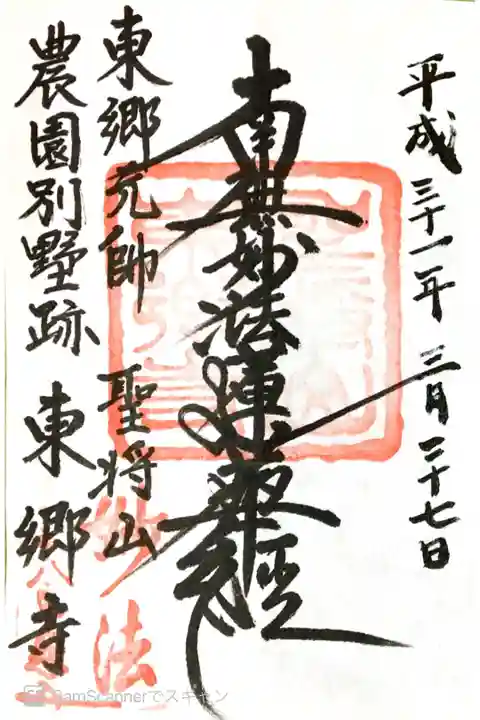 平成三十一年 三月二十七日
南無妙法蓮華經
東郷元帥 聖将山
農園別墅跡 東郷寺
妙法
CamScannerでスキャン